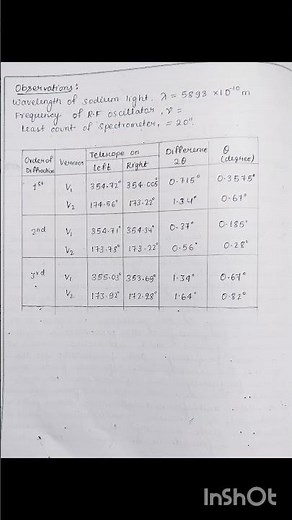 Observations:
Wavelength of sodium light, λ = 5893 ×10⁻¹⁰ m
Frequency of R.F oscillator, ν =
least count of Spectrometer, = 20".
Order of Diffraction Vernier Telescope on left Right Difference 2θ θ (degree)
1st V₁ 354.72° 354.005° 0.715° 0.3575°
V₂ 174.56° 173.22° 1.34° 0.67°
2nd V₁ 354.71° 354.34° 0.37° 0.185°
V₂ 173.78° 173.22° 0.56° 0.28°
3rd V₁ 355.03° 353.69° 1.34° 0.67°
V₂ 173.92° 172.28° 1.64° 0.82°
InShOt